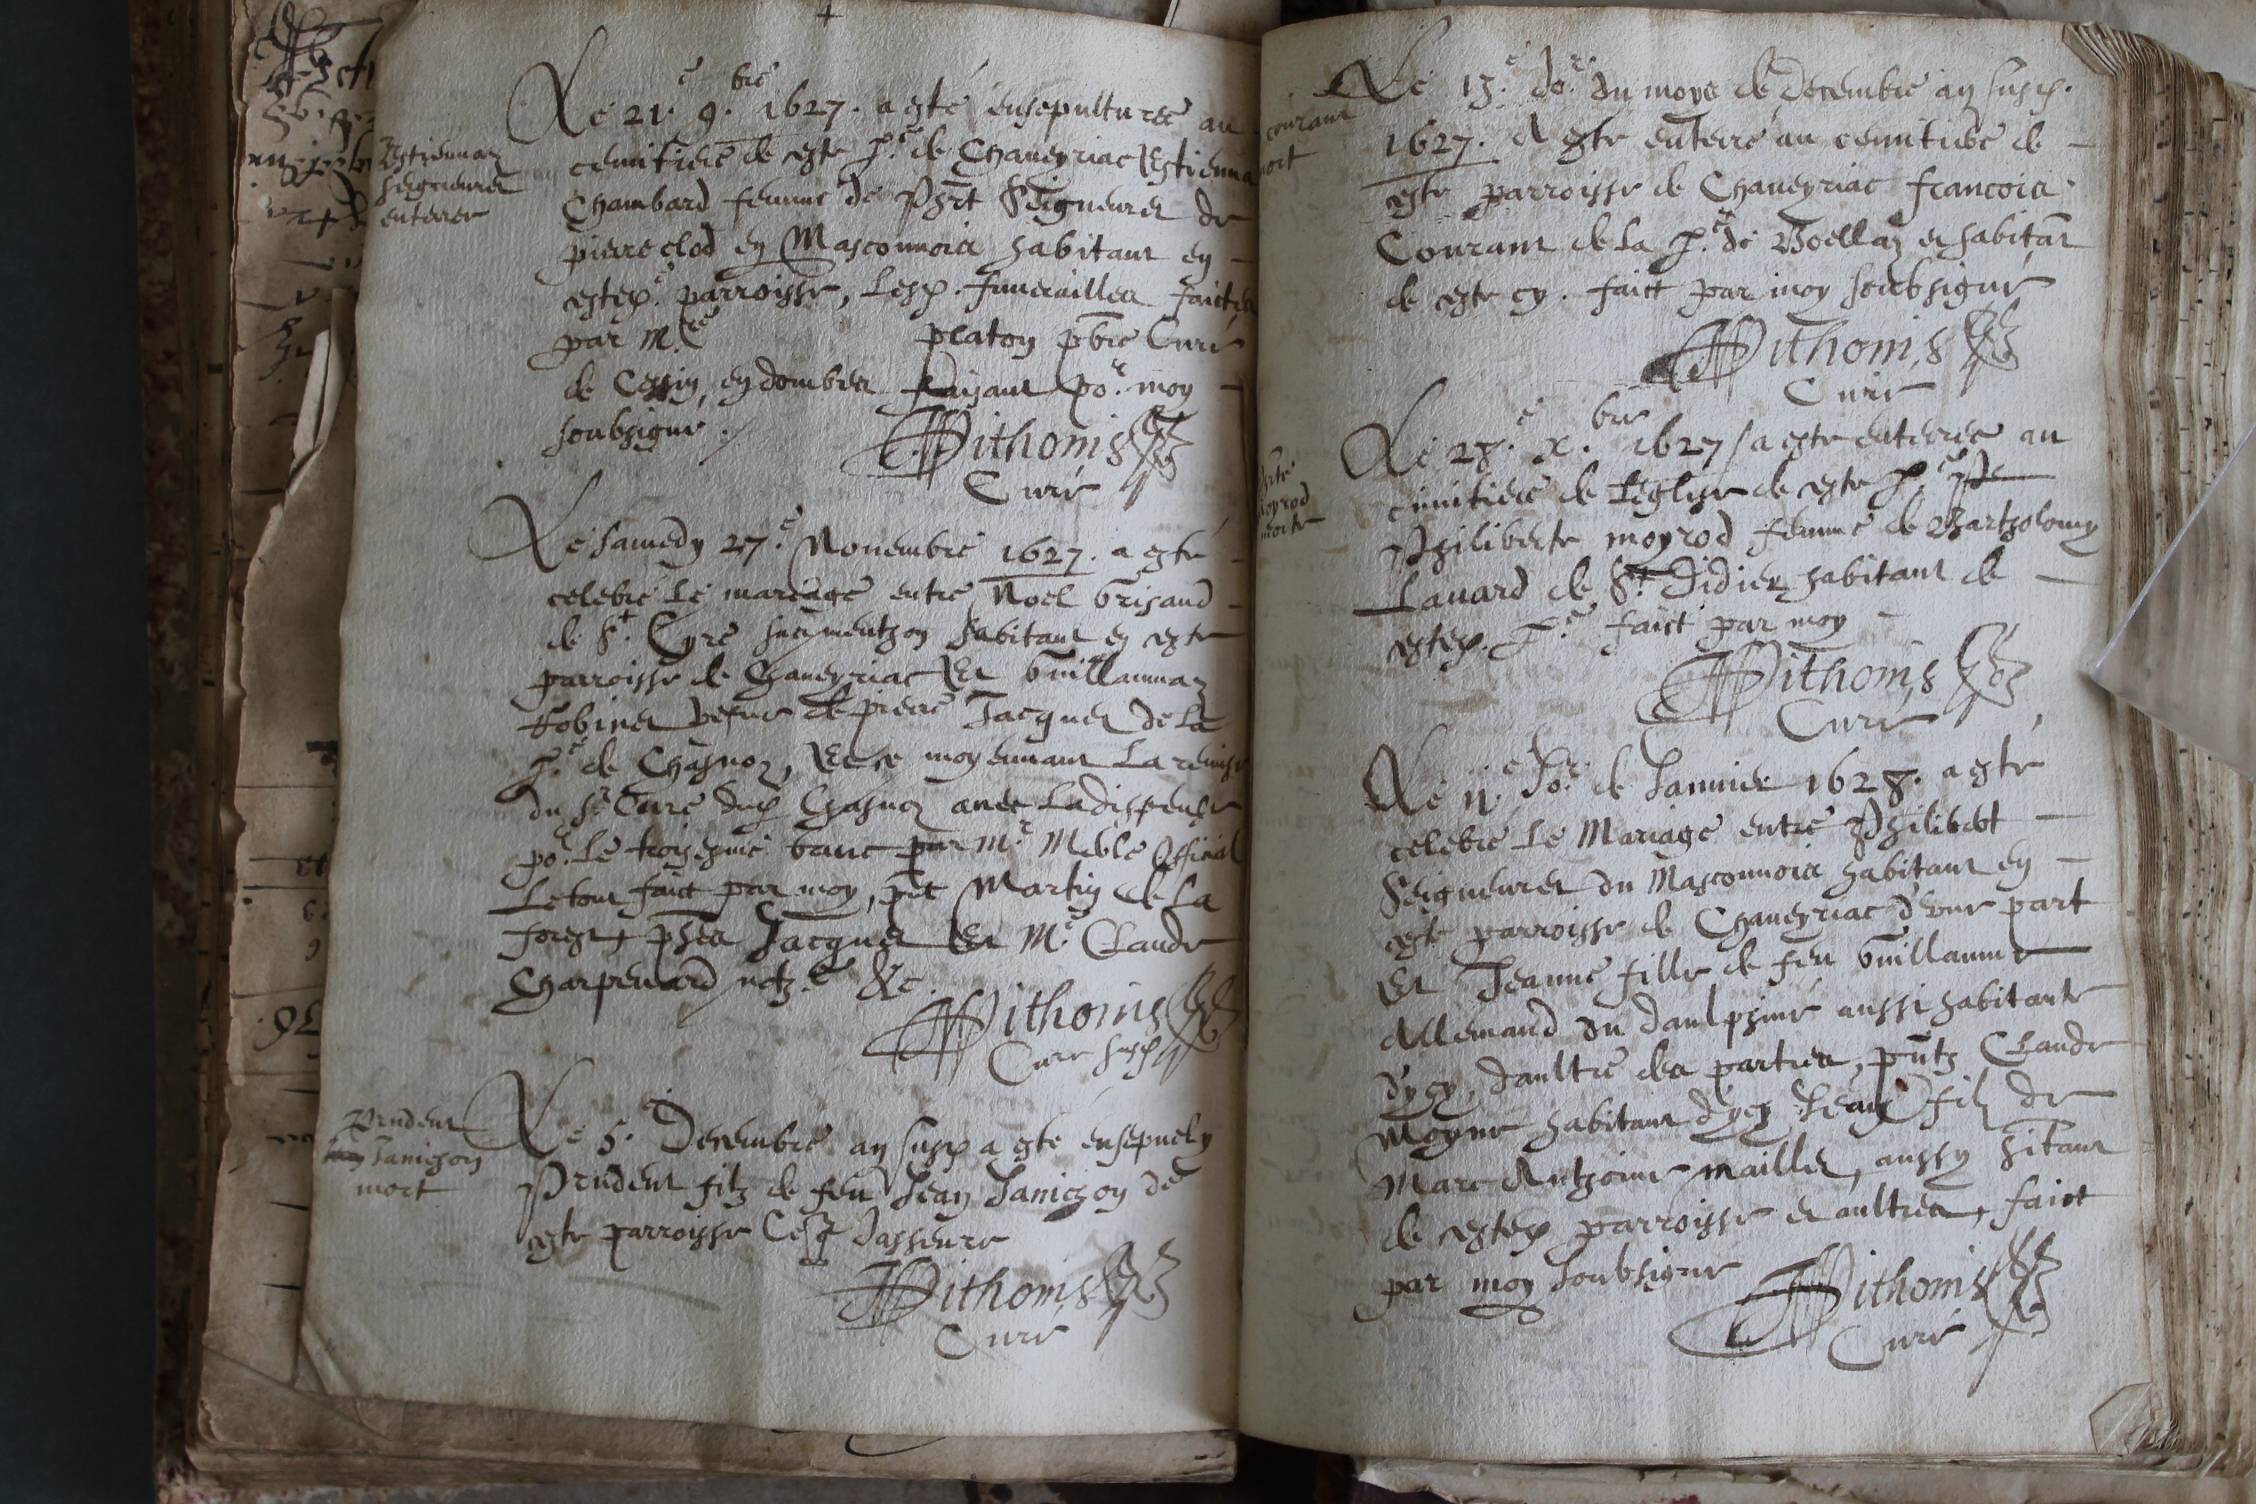 Le 21.e 9.bre 1627. a esté ensepulturee au
cemitiere de este p.e de Chaneyriac Estienna
Chambard femme de Phrt Seigneuret de
pierreclod en Masconnois habitant en
estep. parroisse, lesp. funerailles faictes
par m.re platon pbre Curé
de Cessin, en dombes faisant po.r moy
soubsigné
Pithonis
Curé
Estiennaz
Seigneuret
enterree
Le samedy 27.e Novembre 1627. a esté
celebré le mariage entre Noel Grisaud
de S.t Cyre sus menthon habitant en este
parroisse de Chaneyriac Et Guillaumaz
Gobinet vefve de pierre Jacquet de la
p.e de Chasnoz, Et ce moyennant la remise
du S.r Curé dup Chasnoz avec la dispense
po.r le troisesme banc par M.r Meble Official
Le tout faict par moy, pnt Martin de la
forest, phes Jacquet Et M.e Claude
Charpenard not.re &c.
Pithonis
Curé susp
Le 5.e Decembre an susp a esté ensepvely
Prudent filz de feu Jean Janichon de
este parroisse Ce q Jasseure
Pithonis
Curé
Prudent
Janichon
mort
Le 13.e Jo.r du moys de Decembre an susp.
1627. A esté enterré au cemitiere de
este parroisse de Chaneyriac francois
Courant de la p.e de Voellaz et habitant
de este cy. faict par moy soubsigné
Pithonis
Curé
courant
mort
Le 28.e x.bre 1627 / a esté enterree au
cimitiere de Leglise de este p.e
Philiberte moyrod femme de Bartholomy
Lavard de S.t Didier habitant de
estep. p.e faict par moy
Pithonis
Curé
moyrod
morte
Le 11.e Jo.r de Janvier 1628. a esté
celebré Le Mariage entre Philibert
Seigneuret du Masconnois habitant en
este parroisse de Chaneyriac d'une part
Et Jeanne fille de feu Guillaume
Allemand du daulphiné aussi habitante
dycy, daultre des parties, pntz Claude
Moyne habitant dycy Jean filz de
Marc Anthoine maillet, aussy hitant
de estep parroisse et aultres, faict
par moy soubsigné
Pithonis
Curé